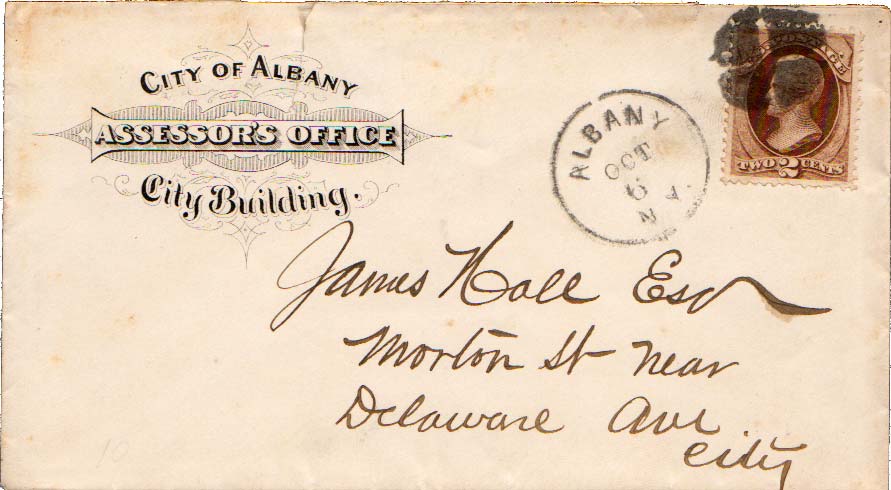 CITY OF ALBANY
ASSESSOR'S OFFICE
City Building.
ALBANY
OCT
6
N.Y.
POSTAGE
TWO 2 CENTS
James Hall Esqr
Morton St near
Delaware Ave
City
10